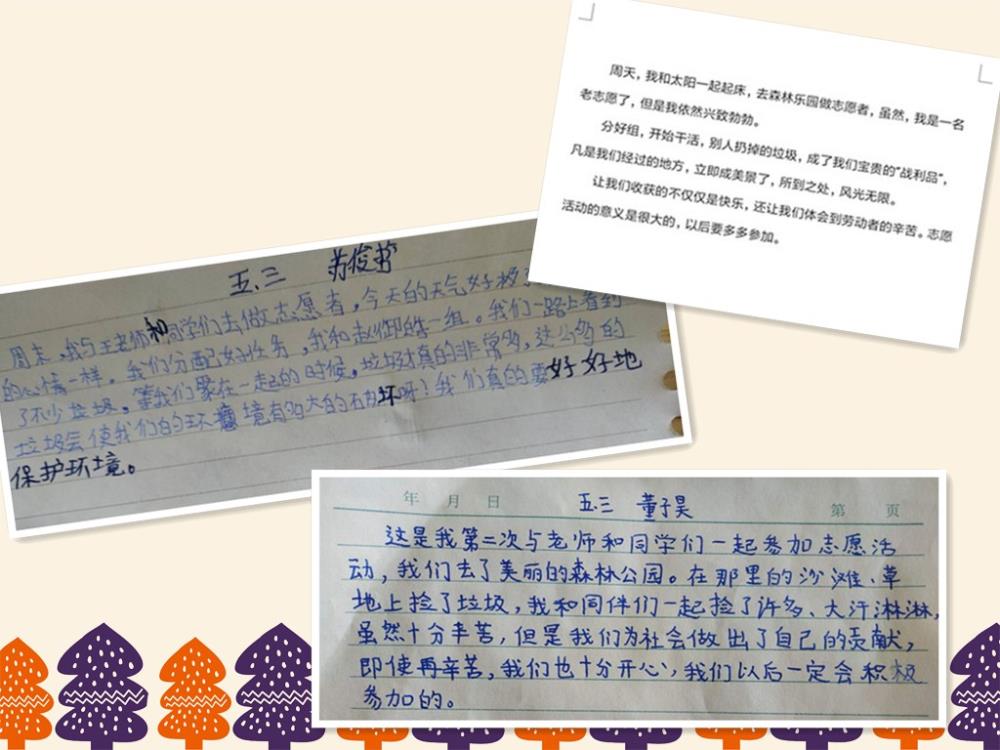 周天，我和太阳一起起床，去森林乐园做志愿者，虽然，我是一名
老志愿了，但是我依然兴致勃勃。
分好组，开始干活，别人扔掉的垃圾，成了我们宝贵的“战利品”，
凡是我们经过的地方，立即成美景了，所到之处，风光无限。
让我们收获的不仅仅是快乐，还让我们体会到劳动者的辛苦。志愿
活动的意义是很大的，以后要多多参加。
五.三 苏俊
周末，我与王老师和同学们去做志愿者，今天的天气好
的心情一样。我们分配好任务，我和赵御皓一组。我们一路上看到
了不少垃圾。等我们聚在一起的时候。垃圾真的非常多，这么多的
垃圾会使我们的环境有多大的破坏呀！我们真的要好好地
保护环境。
年 月 日 五.三 董子昊 第 页
这是我第二次与老师和同学们一起参加志愿活
动，我们去了美丽的森林公园。在那里的沙滩、草
地上捡了垃圾，我和同伴们一起捡了许多、大汗淋淋，
虽然十分辛苦，但是我们为社会做出了自己的贡献，
即使再辛苦，我们也十分开心，我们以后一定会积极
参加的。